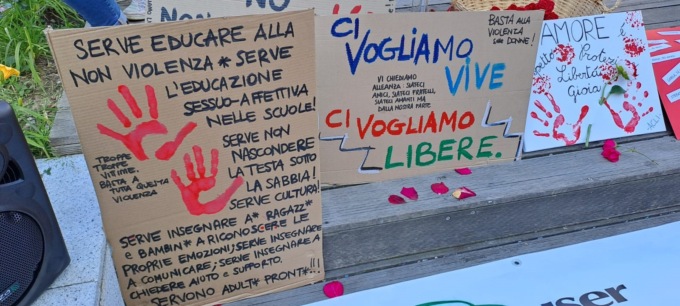 SERVE EDUCARE ALLA
NON VIOLENZA * SERVE
L'EDUCAZIONE
SESSUO-AFFETTIVA
NELLE SCUOLE!
SERVE NON
NASCONDERE
LA TESTA SOTTO
LA SABBIA!
SERVE CULTURA!
TROPPE
TROPPE
VITTIME.
BASTA A
TUTTA QUESTA
VIOLENZA
SERVE INSEGNARE A* RAGAZZ*
E BAMBIN* A RICONOSCERE LE
PROPRIE EMOZIONI; SERVE INSEGNARE
A COMUNICARE; SERVE INSEGNARE A
CHIEDERE AIUTO E SUPPORTO.
SERVONO ADULT* PRONT*...!!
NON
CI
VOGLIAMO
VIVE
VI CHIEDIAMO
ALLEANZA: SIATECI
AMICI, SIATECI FRATELLI,
SIATECI AMANTI MA
DALLA NOSTRA PARTE
CI VOGLIAMO
LIBERE.
BASTA ALLA
VIOLENZA
DONNE!
AMORE È
Rispetto
Libertà
Gioia